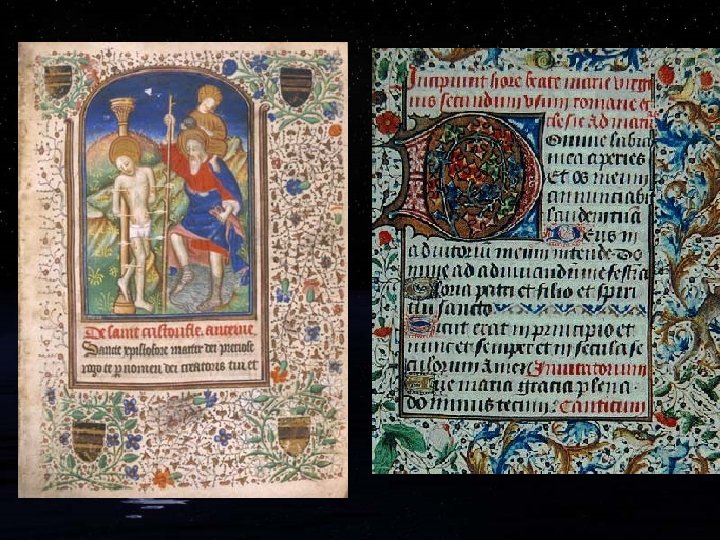 De saint cristofle. antienne
Sancte xpistofore martir dei preciose
rogo te p nomen dei creatoris tui et
Incipiunt hore beate marie virgi
nis secundum usum romane ec
clesie Ad matu
Domine labia
mea aperies
Et os meum
annunciabit
laudem tuā
Deus in
adiutoriū meum intende Do
mine ad adiuuandum me festia
Gloria patri et filio et spiri
tui sancto
Sicut erat in principio et
nunc et semper et in secula se
culorum Amen Inuitatorium
Aue maria gracia plena
dominus tecum. Canticum